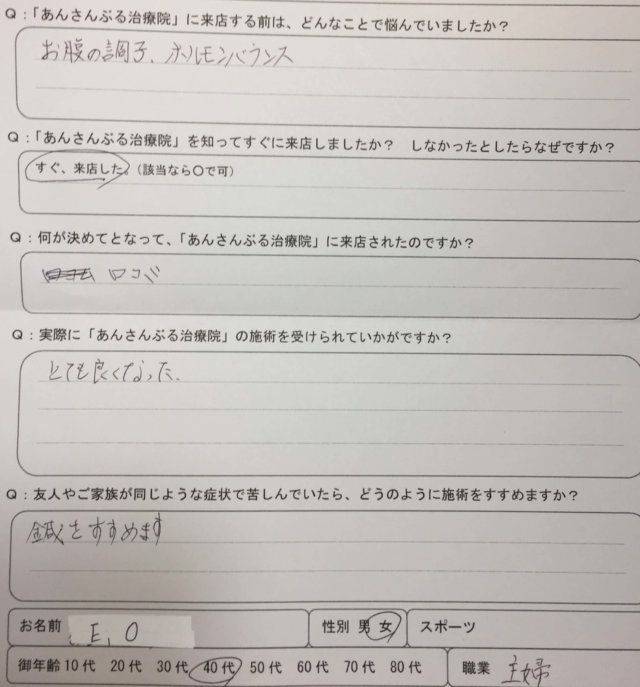 Q：「あんさんぶる治療院」に来店する前は、どんなことで悩んでいましたか？
お腹の調子、ホルモンバランス
Q：「あんさんぶる治療院」を知ってすぐに来店しましたか？　しなかったとしたらなぜですか？
すぐ、来店した。（該当なら〇で可）
Q：何が決めてとなって、「あんさんぶる治療院」に来店されたのですか？
口コミ
Q：実際に「あんさんぶる治療院」の施術を受けられていかがですか？
とても良くなった.
Q：友人やご家族が同じような症状で苦しんでいたら、どうのように施術をすすめますか？
鍼をすすめます
お名前 E, O 性別 男 女 スポーツ
御年齢 10代 20代 30代 40代 50代 60代 70代 80代 職業 主婦